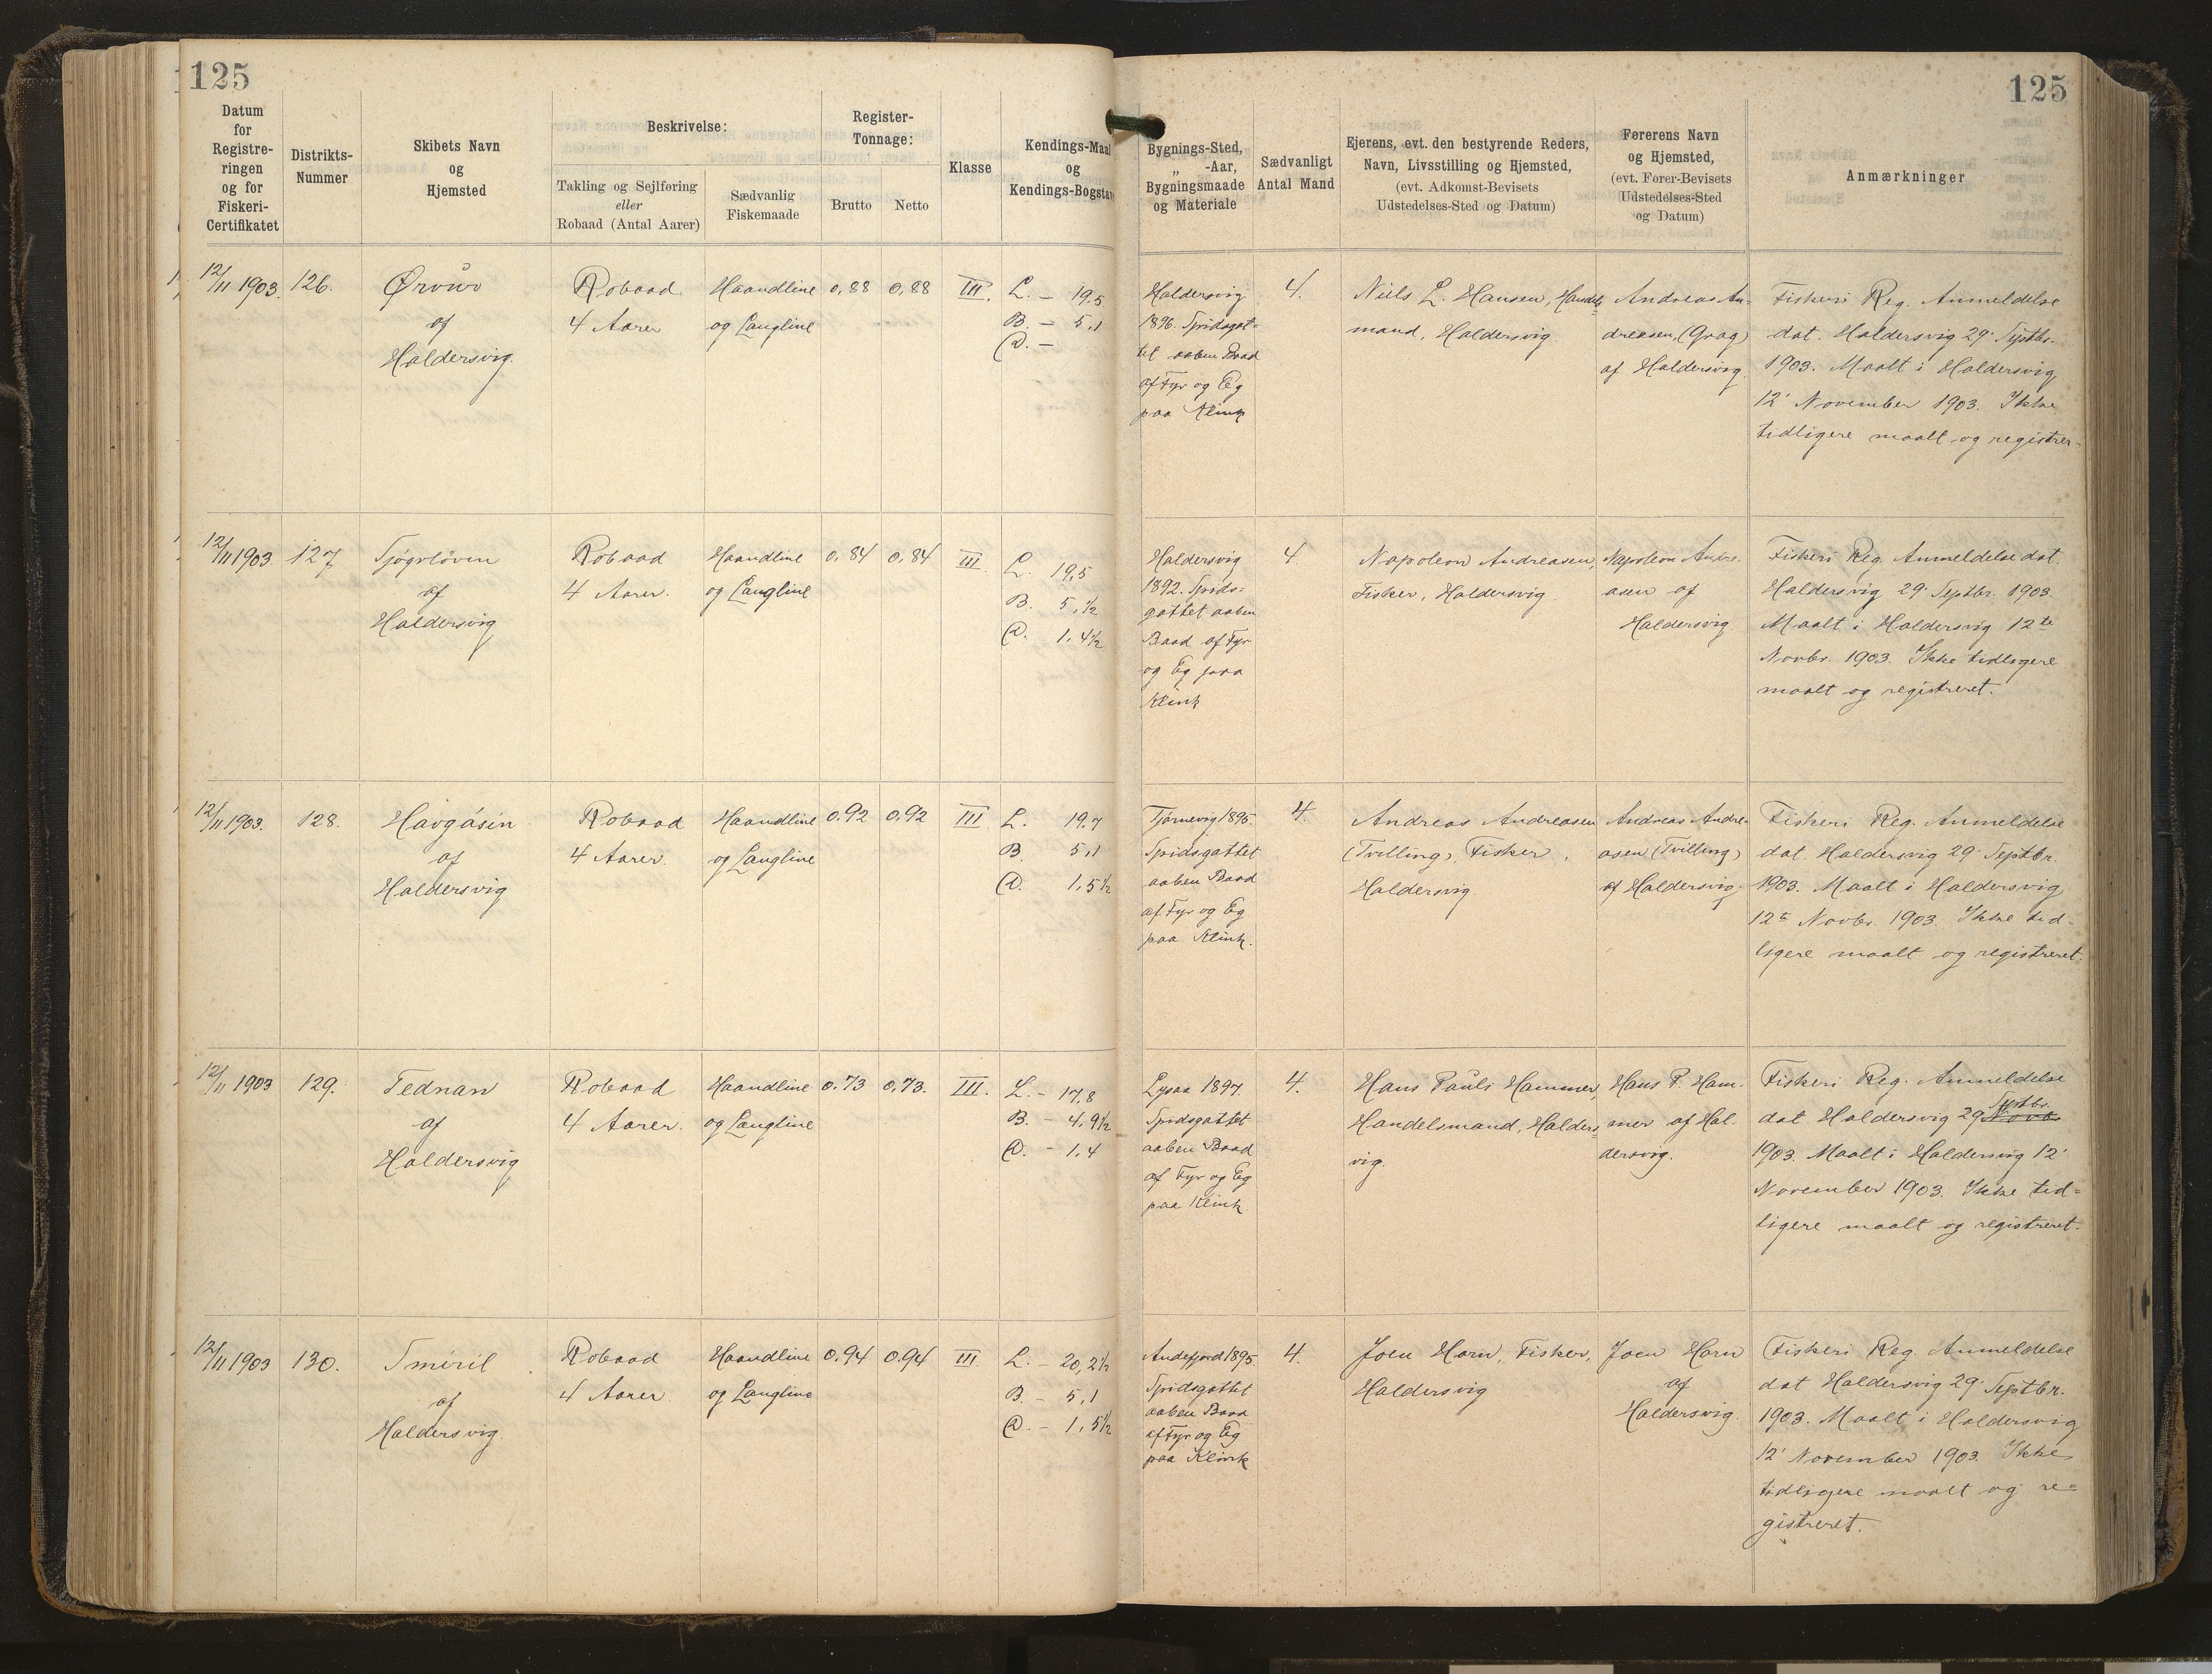 125
125
Datum
for
Registre-
ringen
og for
Fiskeri-
Certifikatet
Distrikts-
Nummer
Skibets Navn
og
Hjemsted
Beskrivelse:
Takling og Sejlføring
eller
Robaad (Antal Aarer)
Sædvanlig
Fiskemaade
Register-
Tonnage:
Brutto
Netto
Klasse
Kendings-Maal
og
Kendings-Bogstav
Bygnings-Sted,
„ -Aar,
Bygningsmaade
og Materiale
Sædvanligt
Antal Mand
Ejerens, evt. den bestyrende Reders,
Navn, Livsstilling og Hjemsted,
(evt. Adkomst-Bevisets
Udstedelses-Sted og Datum)
Førerens Navn
og Hjemsted,
(evt. Fører-Bevisets
Udstedelses-Sted
og Datum)
Anmærkninger
12/11 1903.
126.
Ørvur
af
Haldersvig.
Robaad
4 Aarer
Haandline
og Langline
0,88
0,88
III.
L. - 19,5
B. - 5,1
D. -
Haldersvig
1896. Spidsgat=
tet aaben Baad
af Fyr og Eg
paa Klink
4.
Niels L. Hansen, Handels
mand, Haldersvig.
Andreas An-
dreasen, (Grag)
af Haldersvig.
Fiskeri Reg. Anmeldelse
dat. Haldersvig 29' Septbr.
1903. Maalt i Haldersvig
12' November 1903. Ikke
tidligere maalt og registrer-
12/11 1903
127
Sjøgvløven
af
Haldersvig
Robaad
4 Aarer.
Haandline
og Langline
0,84
0,84
III.
L. 19,5
B. 5,1½
D. 1,4½
Haldersvig
1892. Spids-
gattet aaben
Baad af Fyr
og Eg paa
Klink
4
Napoleon Andreasen,
Fisker, Haldersvig.
Napoleon Andre-
asen af
Haldersvig.
Fiskeri Reg. Anmeldelse dat.
Haldersvig 29' Septbr. 1903.
Maalt i Haldersvig 12te
Novbr. 1903. Ikke tidligere
maalt og registreret.
12/11 1903.
128.
Havgásin
af
Haldersvig
Robaad
4 Aarer.
Haandline
og Langline
0.92
0.92
III
L. 19,7
B. 5,1
D. 1,5½
Tjørnevig 1895.
Spidsgattet
aaben Baad
af Fyr og Eg
paa Klink.
4.
Andreas Andreasen
(Tvilling), Fisker,
Haldersvig
Andreas Andre-
asen (Tvilling)
af Haldersvig.
Fiskeri Reg. Anmeldelse
dat. Haldersvig 29' Septbr.
1903. Maalt i Haldersvig
12te Novbr. 1903. Ikke tid-
ligere maalt og registreret.
12/11 1903
129.
Tednan
af
Haldersvig
Robaad
4 Aarer.
Haandline
og Langline
0.73
0.73.
III.
L. - 17,8
B. - 4,9½
D. - 1,4
Lysaa 1897.
Spidsgattet
aaben Baad
af Fyr og Eg
paa Klink
4.
Hans Pauli Hammer,
Handelsmand, Halders=
vig.
Hans P. Ham-
mer af Hal-
dersvig.
Fiskeri Reg. Anmeldelse
Septbr.
dat. Haldersvig 29' Novb
1903. Maalt i Haldersvig 12'
November 1903. Ikke tid=
ligere maalt og registreret.
12/11 1903
130.
Smiril
af
Haldersvig.
Robaad
4 Aarer
Haandline
og Langline
0.94
0.94
III.
L. - 20,2½
B - 5,1
D. - 1,5½
Andefjord 1895
Spidsgattet
aaben Baad
af Fyr og Eg
paa Klink
4.
Joen Horn, Fisker,
Haldersvig
Joen Horn
af
Haldersvig.
Fiskeri Reg. Anmeldelse
dat Haldersvig 29' Septbr.
1903. Maalt i Haldersvig
12' November 1903. Ikke
tidligere maalt og re=
gistreret.